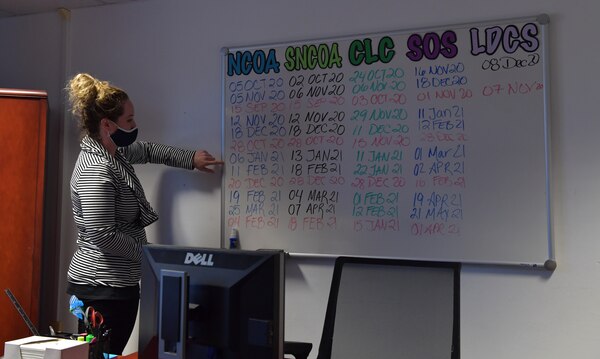 NCOA SNCOA CLC SOS LDCS
05 OCT 20 02 OCT 20 24 OCT 20 16 NOV 20 08 Dec 20
05 NOV 20 06 NOV 20 06 NOV 20 18 DEC 20
SEP 20 15 SEP 20 03 OCT 20 01 NOV 20 07 NOV 20
12 NOV 20 12 NOV 20 29 NOV 20 11 Jan 21
18 DEC 20 18 DEC 20 11 DEC 20 12 FEB 21
28 OCT 20 28 OCT 20 15 NOV 20 DEC 20
06 JAN 21 13 JAN 21 11 JAN 21 01 Mar 21
11 FEB 21 18 FEB 21 22 JAN 21 02 APR 21
20 DEC 20 DEC 20 28 DEC 20 FEB 21
19 FEB 21 04 MAR 21 01 FEB 21 19 APR 21
25 MAR 21 07 APR 21 12 FEB 21 21 MAY 21
04 FEB 21 18 FEB 21 15 JAN 21 01 APR 21
DELL